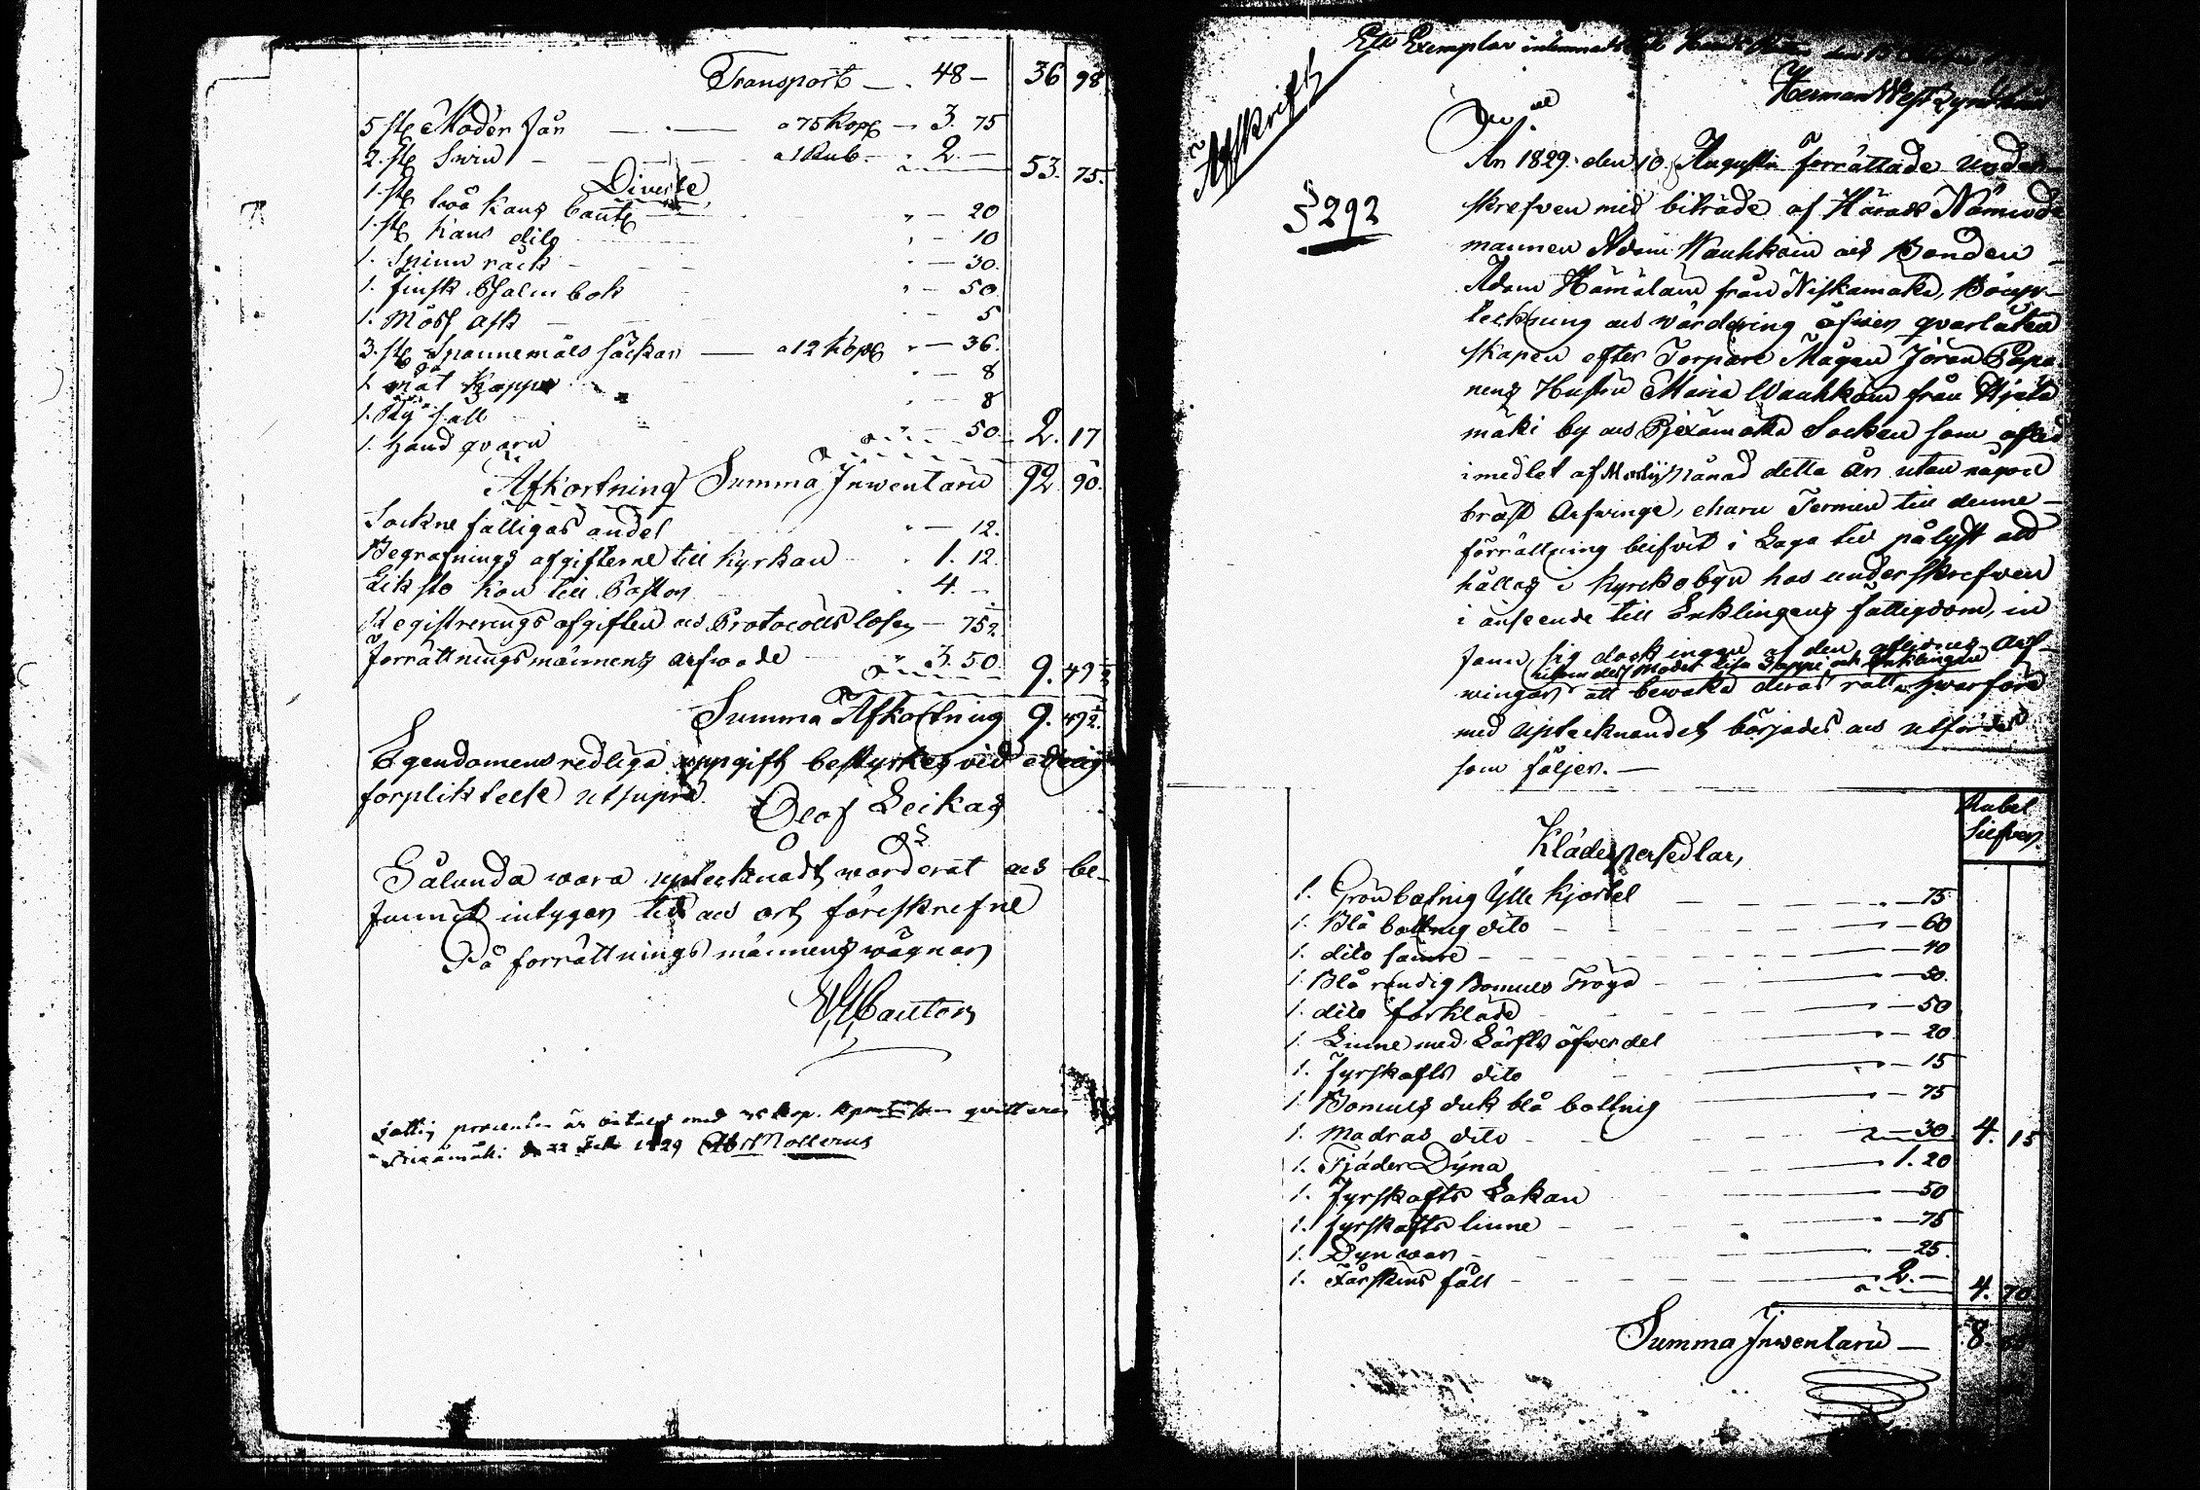 Transport — . 48 — 36 98
5 st. Moder får — . — a 75 kop. — 3. 75
2. st. Swin — — — a 1 Rub. — . 2. — 53. 75.
Diverse
1. st. två kans — 20
1. st. kans dito — 10
1. Spinn råck — 30.
1. finsk Psalmbok — 50
1. Möss ask — 5
3. st. Spannemåls säckar — a 12 kop. — 36.
1 måt kappe — 8
1. Ry såll — 8
1. hand qvarn — 50 2. 17
Afkortning Summa Inwentarii 92 90.
Sockne fattigas andel — 12.
Begrafnings afgifterne till kyrkan . 1. 12.
Liksto kon till Pastor . 4. —
Registrerings afgiften och Protocolls lösen — 75 ½
Förrättningsmännens arfwode 3. 50 9. 49 ½
Summa Afkortning 9. 49 ½.
Egendomens redliga uppgift bestyrkes vid edelig
förplicktelse utsupra.
Olof Leikas
Sålunda wara uptecknadt, warderat och be-
funnit intygar tid och ort föreskrefne
På förrättnings männens wägnar
Fattig procenten är betald med kop. qvitteras
d. 22 1829 Molterus
Ett Exemplar inlemnadt till Härads Rätten den 15
Herman West Zynd
Afskrift
§ 292
År 1829. den 10. Augusti förrättade under-
skrefven mid biträde af Härads Nämnde
mannen Adam Wauhkoin och Bonden
Adam Hämäläin från Niskamäki, Boupp-
teckning och wärdering öfwer qvarlåten
skapen efter Torpare Mågen Jöran Papi-
nens Hustru Maria Wauhkoin från Kjälä
mäki by och Pjexämäki Socken som afled
imedlet af Maji månad detta År utan någon
bröst Arfwinge, ehuru Termin till denne
förrättning blifvit i Laga tid pålyst att
hållas i kyrckobyn hos underskrefwen
i anseende till Enklingens fattigdom, in
fann sig dock ingen af den aflednes Arf-
utom des Moder Lisa Sappi och Enklingen
wingar att bewaka deras rätt, hwarföre
med uptecknandet börjades och utfördes
som följer. —
Rubel Silfver
Klädespersedlar,
1. Grön botnig Ylle kjortel — 75.
1. Blå bottnig dito — 60
1. dito sämre — 40
1. Blå randig Bomuls Tröja — 50.
1. dito förkläde — 50
1. Linne med Lärfts öfwerdel — 20
1. fyrskafts dito — 15
1. Bomuls duk blå bottnig — 75
1. Madras dito — 30 4. 15
1. Fjäder Dyna — 1. 20
1. fyrskafts Lakan — 50
1. fyrskafts linne — 75
1. Dyn war — 25.
1. Fårskins fäll — 2. — 4. 70.
Summa Inwentarii — 8.